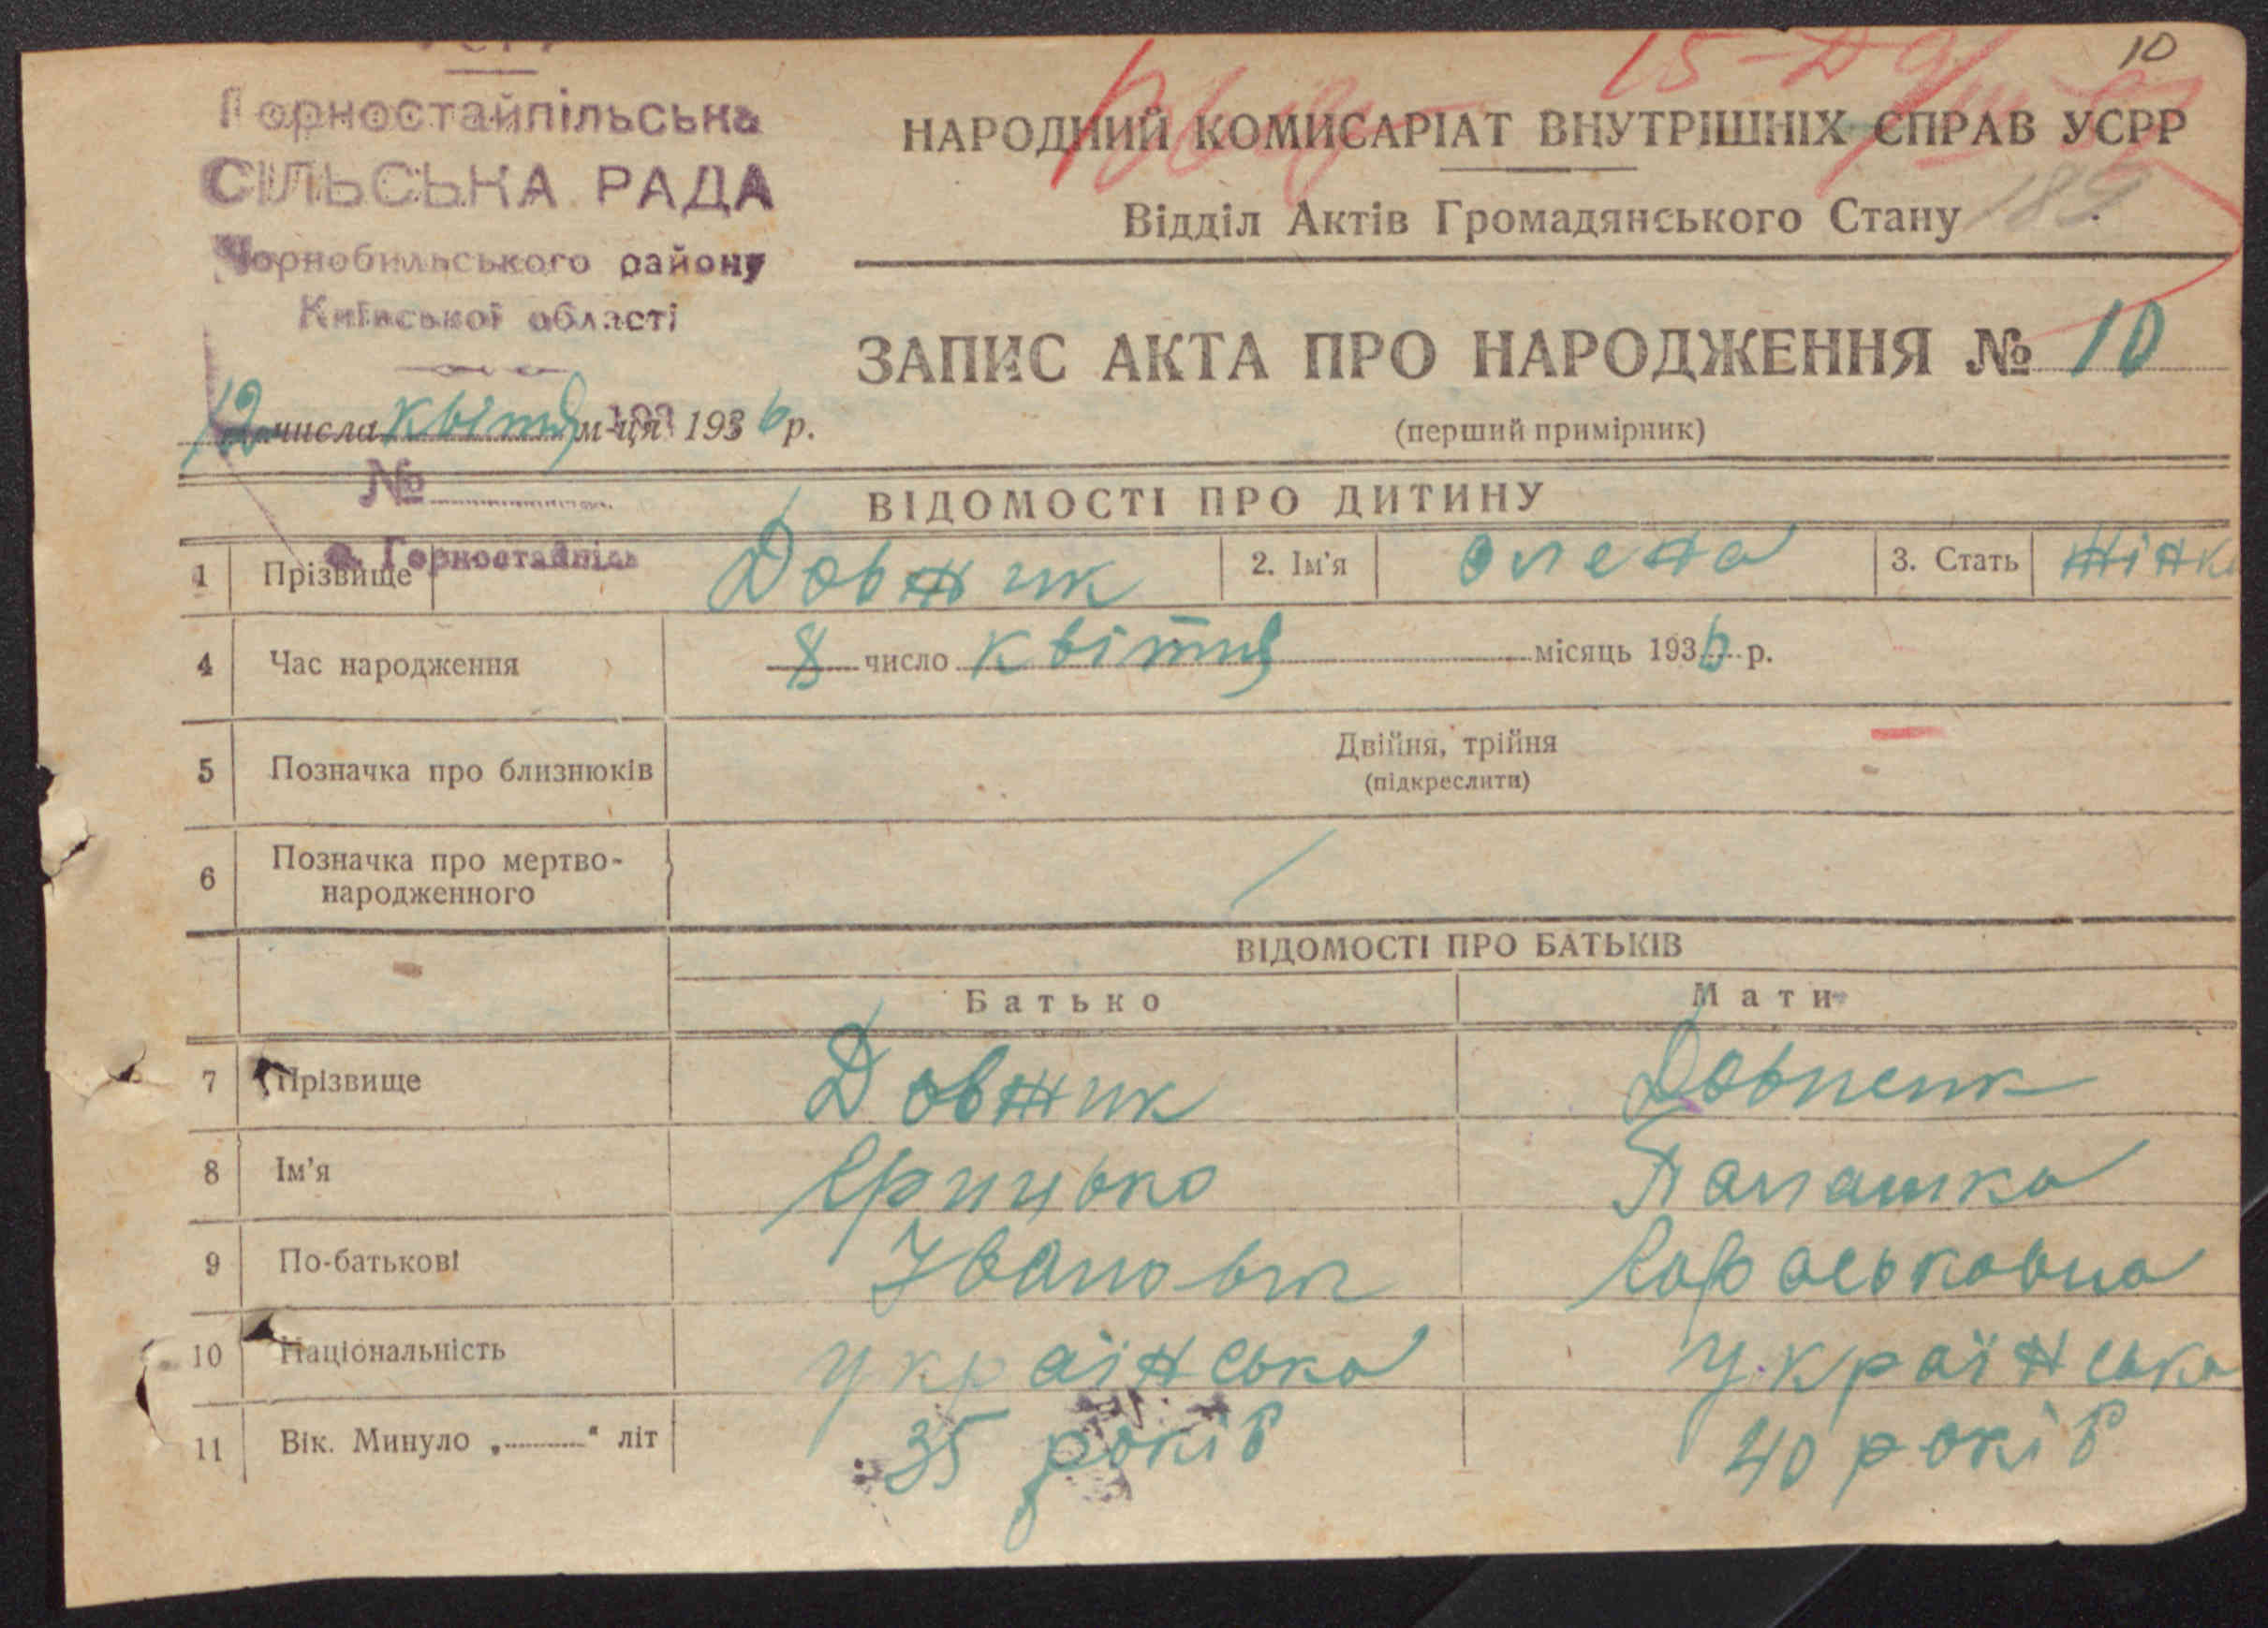 10
15-
Горностайпільська
СІЛЬСЬКА РАДА
Чорнобильського району
Київської області
НАРОДНИЙ КОМИСАРІАТ ВНУТРІШНІХ СПРАВ УСРР
Відділ Актів Громадянського Стану
189
ЗАПИС АКТА ПРО НАРОДЖЕННЯ № 10
(перший примірник)
12 числа квітня м-ця 1936 р.
№
с. Горностайпіль
ВІДОМОСТІ ПРО ДИТИНУ
1 Прізвище Довжик 2. Ім'я Олена 3. Стать жінка
4 Час народження 8 число квітня місяць 1936 р.
5 Позначка про близнюків Двійня, трійня
(підкреслити)
6 Позначка про мертво-
народженного
ВІДОМОСТІ ПРО БАТЬКІВ
Батько Мати
7 Прізвище Довжик
8 Ім'я Грицько Палашка
9 По-батькові Івановіч
10 Національність українська українська
11 Вік. Минуло „ “ літ 35 років 40 років